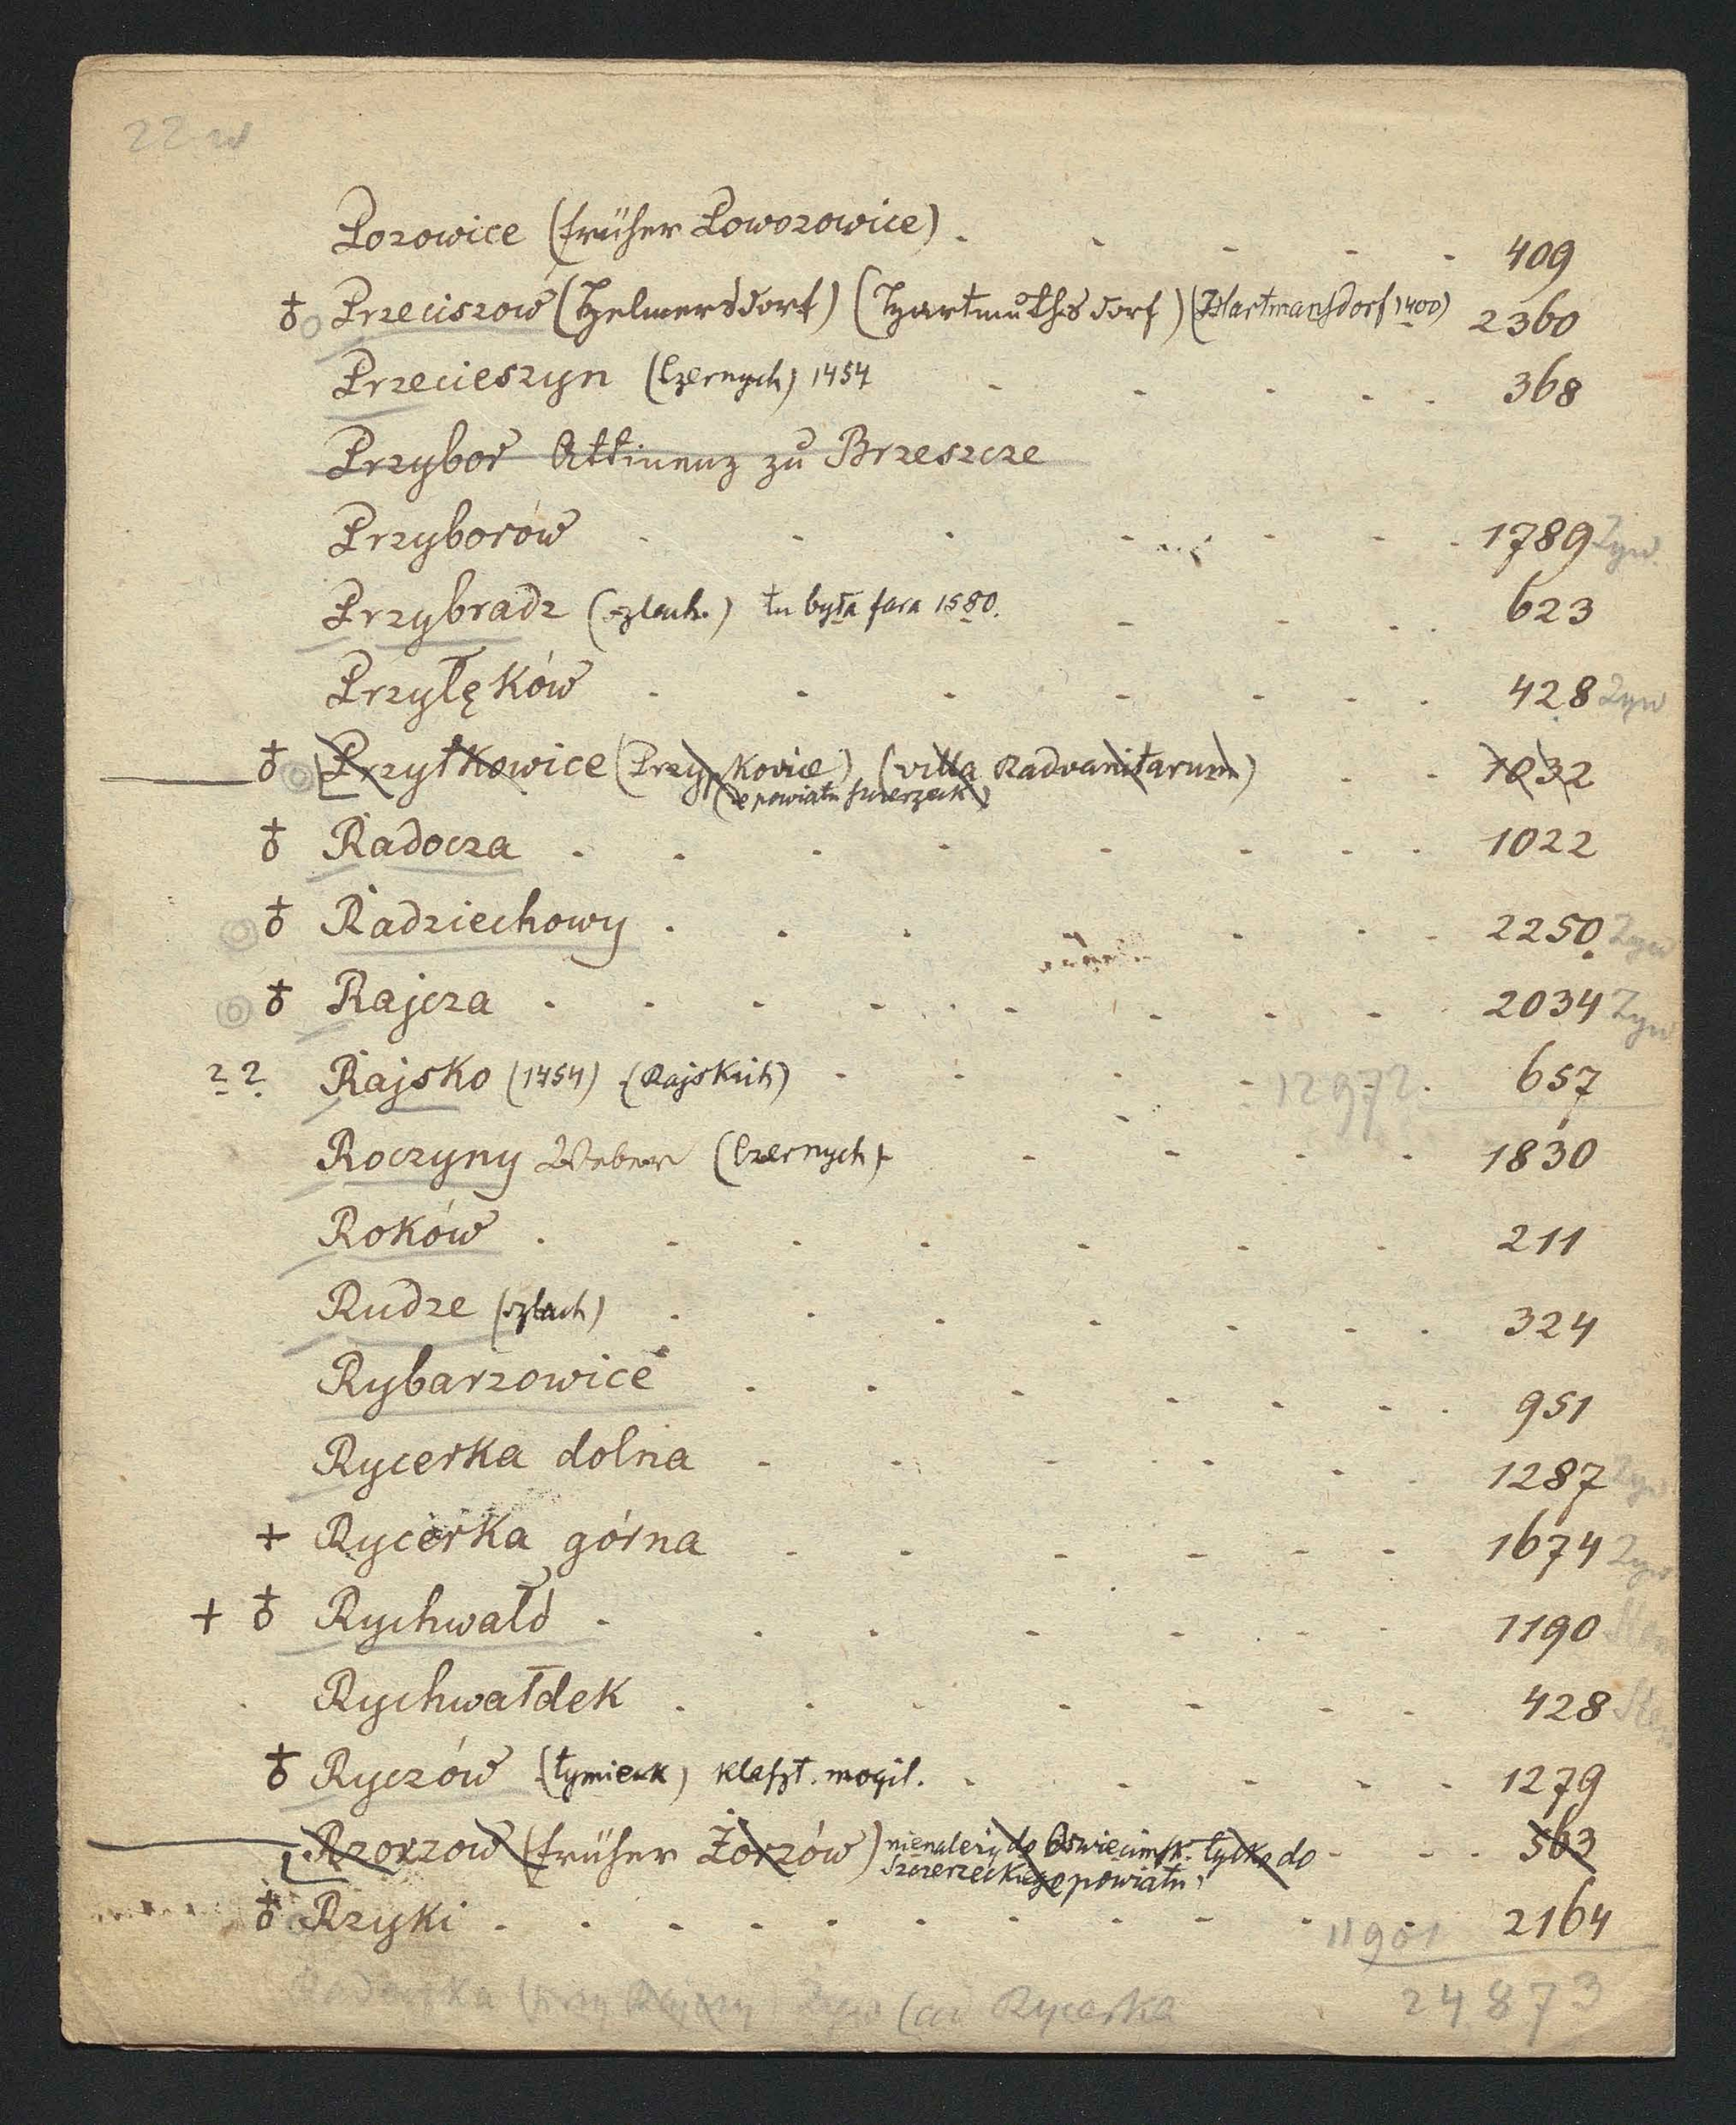 22
Porowice (früher Poworowice) . . . . . 409
♁ Przeciszow (Helmersdorf) (Hartmuthsdorf) (Hartmansdorf 1400) 2360
Przecieszyn (Czernych) 1454 . . . . . 368
Przybor Attinenz zu Brzeszcze
Przyborów . . . . . . . . 1789 Zyw.
Przybradz (szlach.) tu była fara 1580. . . . . 623
Przyłęków . . . . . . . 428 Zyw
♁ Przytkowice (Przypkovice) (villa Radvanitarum) . . 1032
(z powiatu szczerzeck)
♁ Radocza . . . . . . . . 1022
♁ Radziechowy . . . . . . 2250 Zyw
♁ Rajcza . . . . . . . . . 2034 Zyw
?? Rajsko (1454) (Rajskich) . . . . 12972 . 657
Roczyny Weber (Czernych) . . . . 1830
Roków . . . . . . . 211
Rudze (szlach) . . . . . . . 324
Rybarzowice . . . . . . . 951
Rycerka dolna . . . . . . 1287 Zyw
+ Rycerka górna . . . . . . 1674 Zyw
+ ♁ Rychwałd . . . . . . . . 1190
Rychwałdek . . . . . . . 428
♁ Ryczów (tymieck) klaszt. mogil. . . . . . 1279
Rzorzow (früher Żorzów) nienależy do Oswiecimsk. tylko do . . . 563
Szczerzeckiego powiatu
♁ Rzyki . . . . . . . . . . . 11901 2164
Rycerka 24873